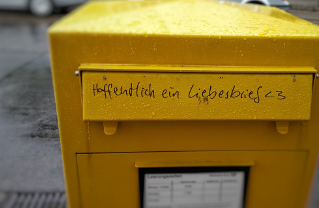 Hoffentlich ein Liebesbrief <3